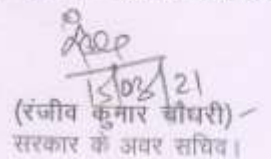 15/03/21
(रंजीव कुमार चौधरी)
सरकार के अवर सचिव।